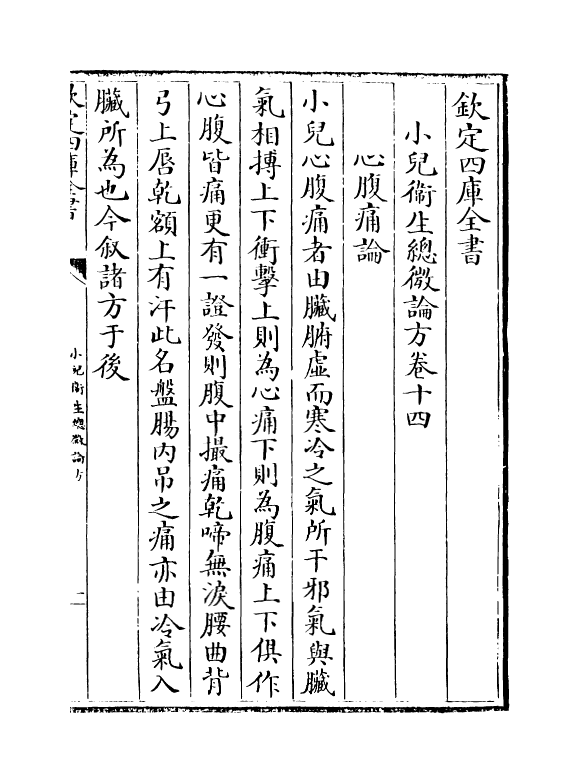 欽定四庫全書
小兒衞生總微論方卷十四
心腹痛論
小兒心腹痛者由臟腑虛而寒冷之氣所干邪氣與臟
氣相搏上下衝擊上則為心痛下則為腹痛上下俱作
心腹皆痛更有一證發則腹中撮痛乾啼無淚腰曲背
弓上唇乾額上有汗此名盤腸内吊之痛亦由冷氣入
臟所為也今叙諸方于後
欽定四庫全書
小兒衞生總微論方